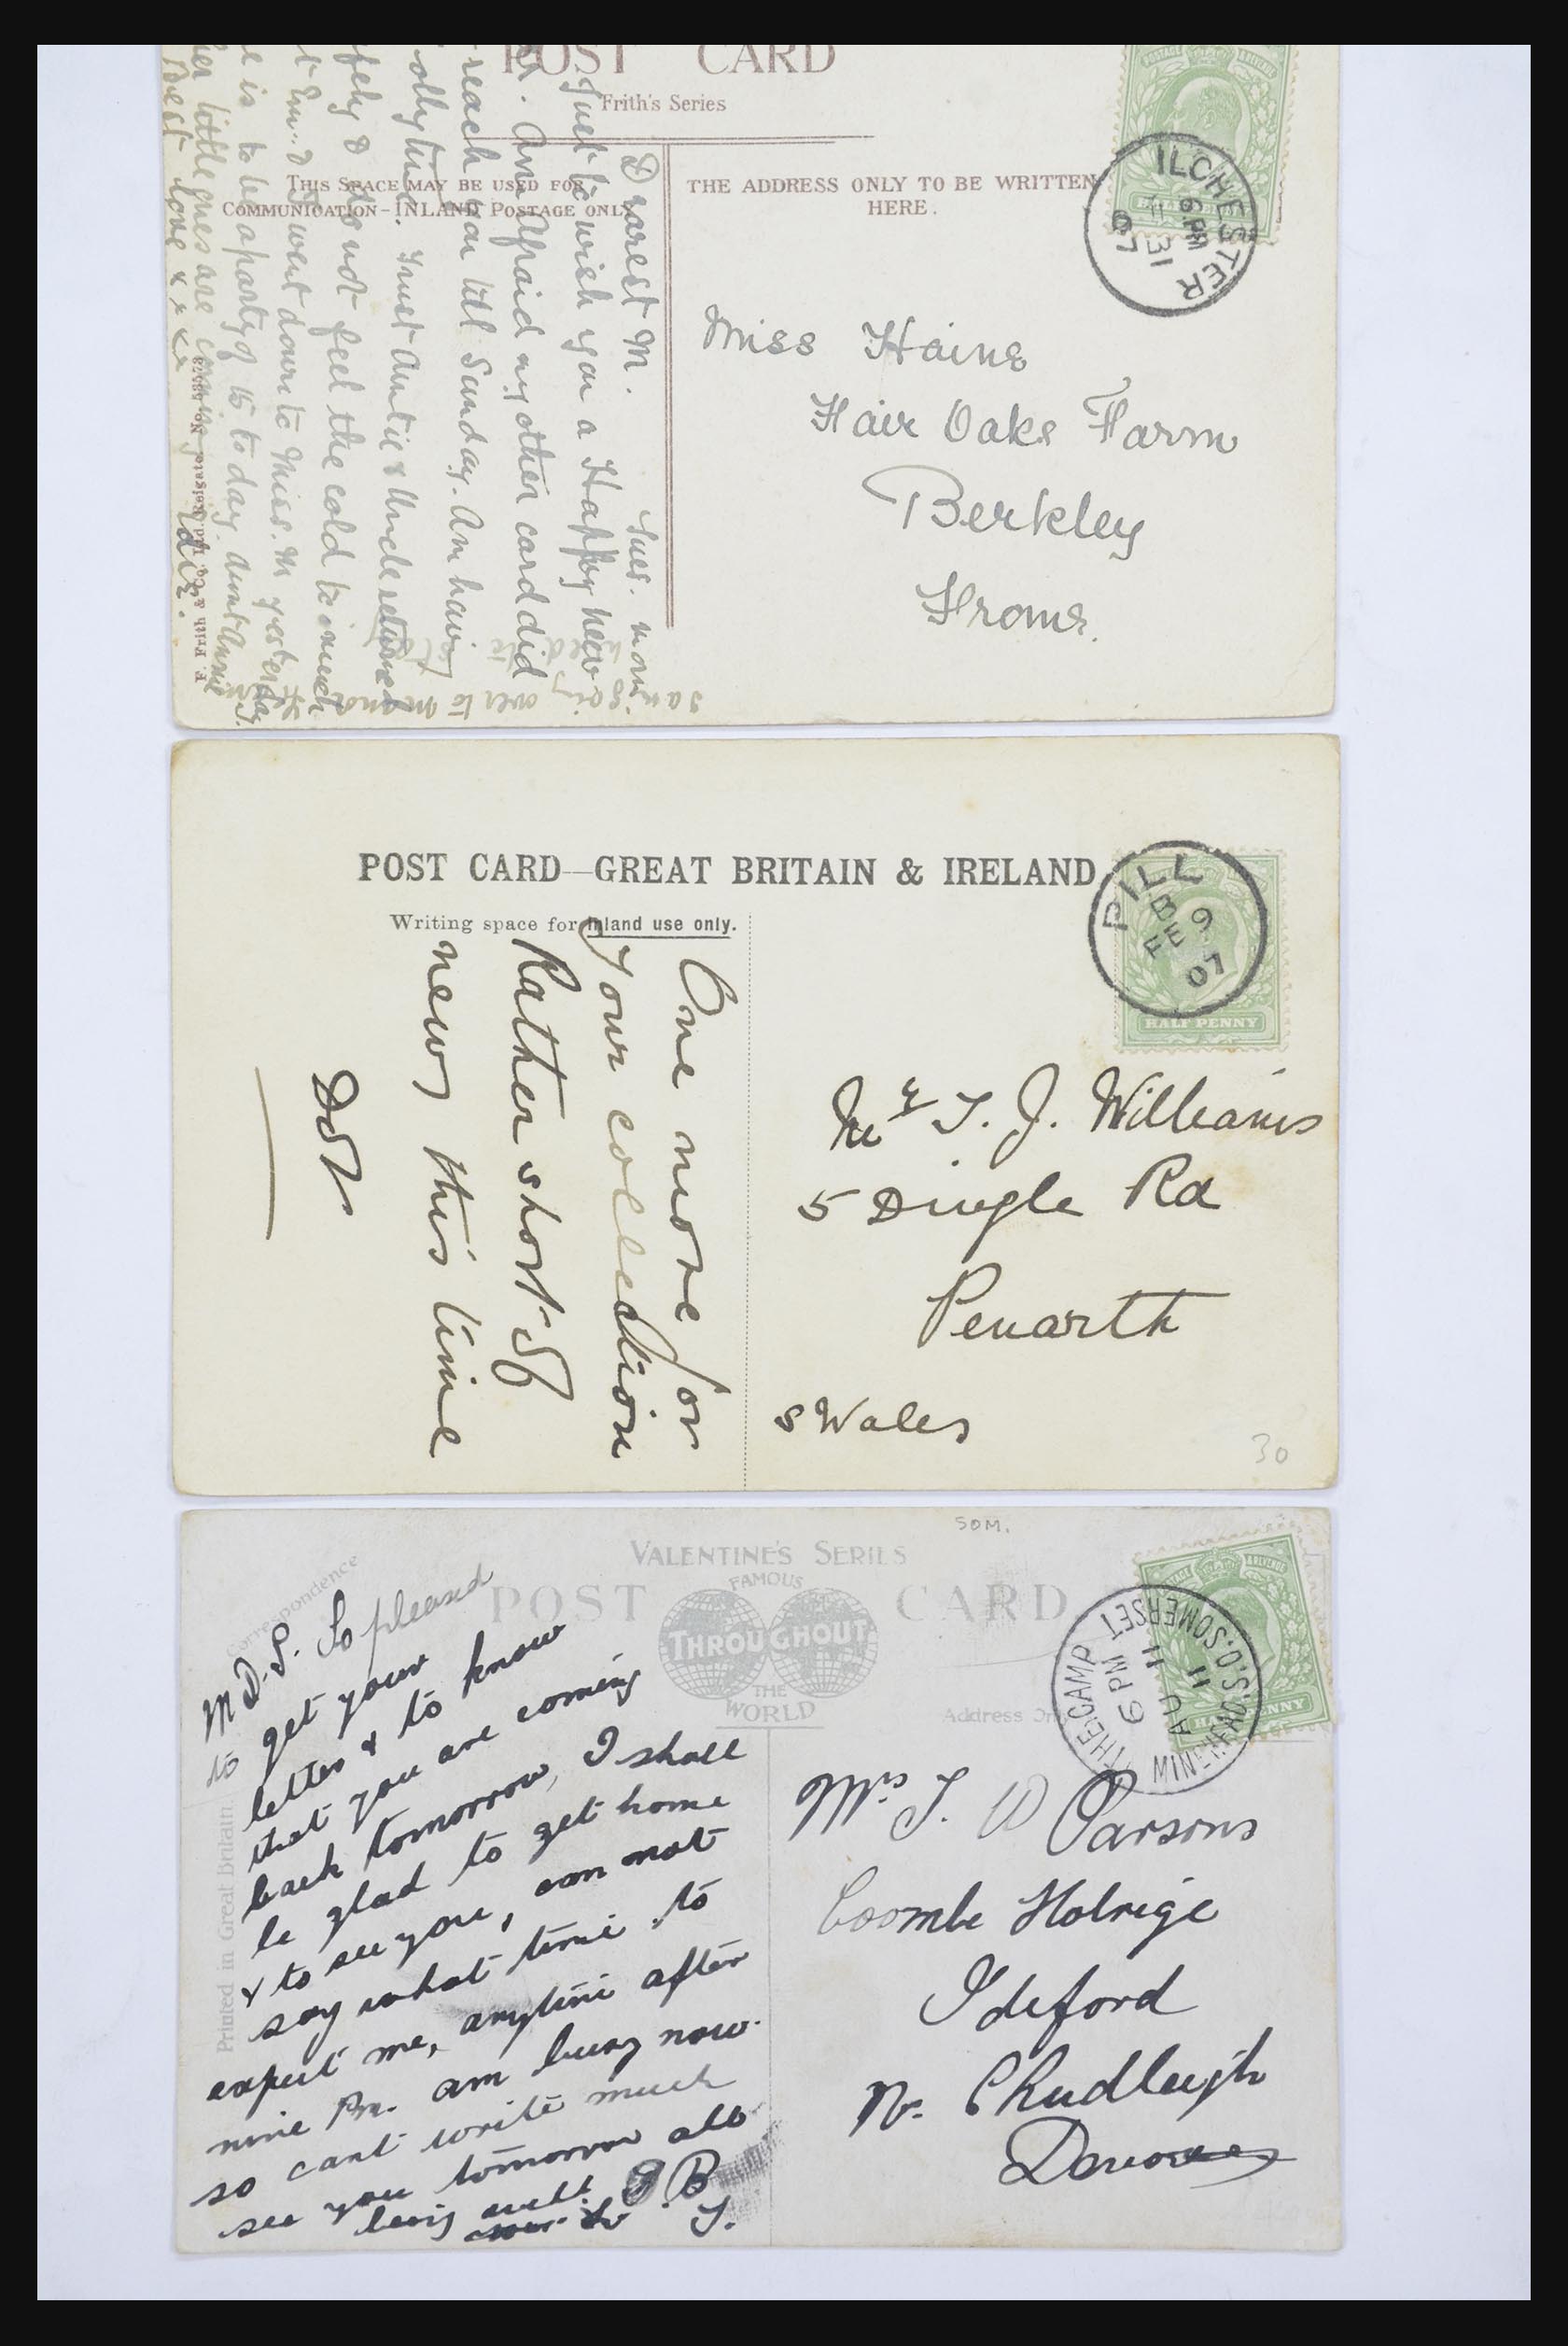 POST CARD
Frith's Series
THIS SPACE MAY BE USED FOR
COMMUNICATION-INLAND POSTAGE ONLY
THE ADDRESS ONLY TO BE WRITTEN
HERE.
POSTAGE REVENUE
ILCHESTER
6.PM
31
07
Miss Hains
Fair Oaks Farm
Berkley
Frome.
Tues. morn
Dearest M.
Just to wish you a Happy New
Am afraid my other card did
reach you till Sunday. Am having
jolly time. Trust Auntie & Uncle returned
safely & do not feel the cold to much
went down to Miss. M yesterday
is to be a party of 15 to day. Aunt Annie
little ones are coming
Best love x x x
F. Frith & Co. Ltd. Reigate
POST CARD—GREAT BRITAIN & IRELAND
Writing space for inland use only.
PILL
B
FE 9
07
HALF PENNY
One more for
your collection
Rather short of
news this time
Dot
Mr T. J. Williams
5 Dingle Rd
Penarth
S Wales
30
SOM.
VALENTINE'S SERIES
FAMOUS
POST CARD
THROUGHOUT
THE
WORLD
Correspondence
Address Only
Printed in Great Britain
POSTAGE & REVENUE
HALF PENNY
THE CAMP
MINEHEAD.S.O.SOMERSET
6 PM
AU 11
11
M.D.S. So pleased
to get your
letter & to know
that you are coming
back tomorrow, I shall
be glad to get home
& to see you, can not
say what time to
expect me, anytime after
nine Pm. am busy now.
so cant write much
see you tomorrow all
being well.
Mrs S. W Parsons
Coombe Holrige
Ideford
Nr. Chudleigh
Devon